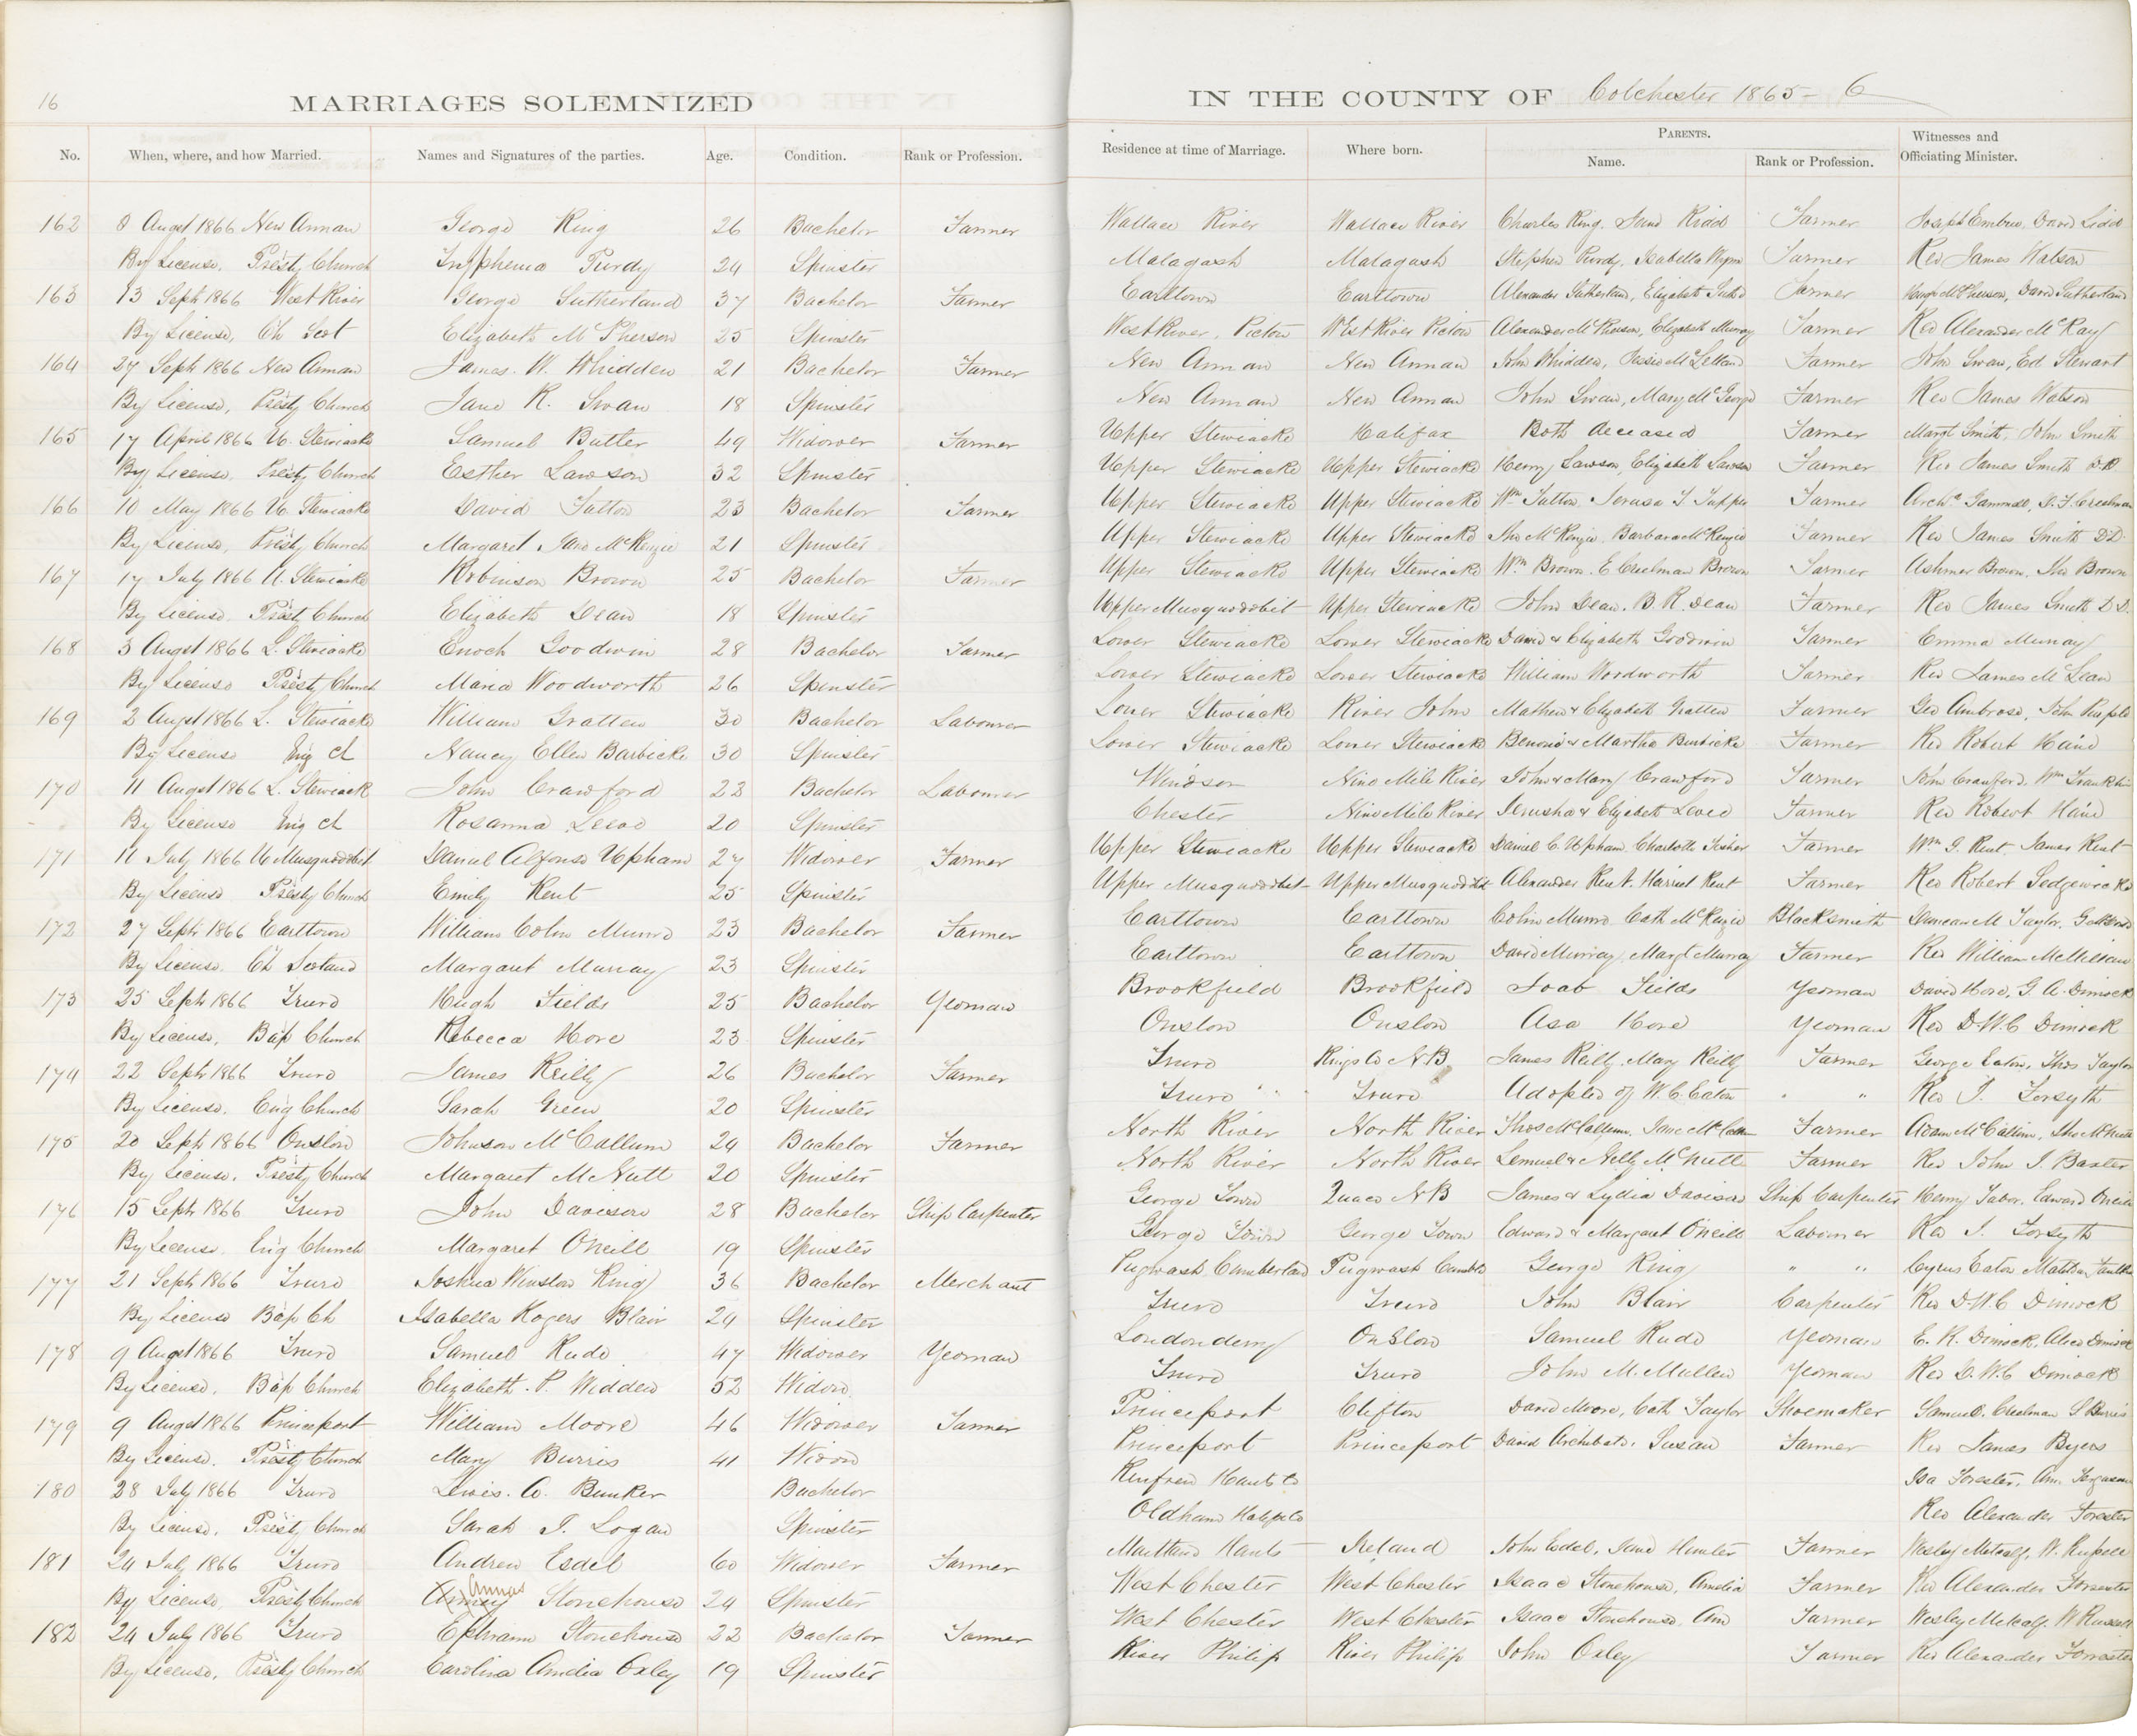 16
MARRIAGES SOLEMNIZED IN THE COUNTY OF Colchester 1865-6
No. When, where, and how Married. Names and Signatures of the parties. Age. Condition. Rank or Profession. Residence at time of Marriage. Where born. PARENTS. Name. Rank or Profession. Witnesses and Officiating Minister.
162 8 Augst 1866 New Annan George King 26 Bachelor Farmer Wallace River Wallace River Charles King. Jane Kidd Farmer Joseph Embree, David
By License, Presby Church Tryphena Purdy 24 Spinster Malagash Malagash Stephen Purdy, Isabella Farmer Rev James Watson
163 13 Sept 1866 West River George Sutherland 37 Bachelor Farmer Earltown Earltown Alexander Sutherland, Elizabeth Farmer Hugh McPherson, David Sutherland
By License, Ch Scot Elizabeth McPherson 25 Spinster West River, Pictou West River Pictou Alexander McPherson, Elizabeth Murray Farmer Rev Alexander McKay
164 27 Sept 1866 New Annan James. W. Whidden 21 Bachelor Farmer New Annan New Annan John Whidden, Jessie McLelland Farmer John Swan, Ed Stewart
By License, Presby Church Jane R. Swan 18 Spinster New Annan New Annan John Swan, Mary McGeorge Farmer Rev James Watson
165 17 April 1866 Up. Stewiacke Samuel Butler 49 Widower Farmer Upper Stewiacke Halifax Both deceased Farmer Margt Smith, John Smith
By License, Presby Church Esther Lawson 32 Spinster Upper Stewiacke Upper Stewiacke Henry Lawson, Elizabeth Lawson Farmer Rev James Smith D.D.
166 10 May 1866 Up. Stewiacke David Fulton 23 Bachelor Farmer Upper Stewiacke Upper Stewiacke Wm Fulton, Jerusa T. Tupper Farmer Archd Gammell, S. F. Creelman
By License, Presby Church Margaret Jane McKenzie 21 Spinster Upper Stewiacke Upper Stewiacke Jno McKenzie. Barbara McKenzie Farmer Rev James Smith D.D.
167 17 July 1866 U. Stewiacke Robinson Brown 25 Bachelor Farmer Upper Stewiacke Upper Stewiacke Wm Brown. E Creelman Brown Farmer Ashmer Brown, Jno Brown
By License, Presby Church Elizabeth Dean 18 Spinster Upper Musquodobit Upper Stewiacke John Dean. B. R. Dean Farmer Rev James Smith D.D.
168 3 Augst 1866 L. Stewiacke Enoch Goodwin 28 Bachelor Farmer Lower Stewiacke Lower Stewiacke David & Elizabeth Goodwin Farmer Emma Murray
By License Presby Church Maria Woodworth 26 Spinster Lower Stewiacke Lower Stewiacke William Woodworth Farmer Rev James McLean
169 2 Augst 1866 L. Stewiacke William Gratten 30 Bachelor Labourer Lower Stewiacke River John Mathew & Elizabeth Gratten Farmer Geo Ambrose, John
By License Eng Ch Nancy Ellen Barbicke 30 Spinster Lower Stewiacke Lower Stewiacke Benoni & Martha Burbicke Farmer Rev Robert
170 11 Augst 1866 L. Stewiack John Crawford 23 Bachelor Labourer Windsor Nine Mile River John & Mary Crawford Farmer John Crawford, Wm Franklin
By License Eng Ch Rosanna 20 Spinster Chester Nine Mile River Jerusha & Elizabeth Farmer Rev Robert
171 11 July 1866 U Musquodobit Daniel Alfonso Upham 27 Widower Farmer Upper Stewiacke Upper Stewiacke Daniel C. Upham Charlotte Fisher Farmer Wm J. Kent, James Kent
By License Presby Church Emily Kent 25 Spinster Upper Musquodobit Upper Musquodobit Alexander Kent. Harriet Kent Farmer Rev Robert Sedgewicke
172 27 Sept 1866 Earltown William Colin Munro 23 Bachelor Farmer Earltown Earltown Colin Munro. Cath McKenzie Blacksmith Duncan M Taylor,
By License. Ch Scotand Margaret Murray 23 Spinster Earltown Earltown David Murray, Margt Murray Farmer Rev William McMillan
173 25 Sept 1866 Truro Hugh Fields 25 Bachelor Yeoman Brookfield Brookfield Joab Fields Yeoman David Hore, G. A. Dimock
By License, Bap Church Rebecca Hore 23 Spinster Onslow Onslow Asa Hore Yeoman Rev D.W.C Dimock
174 22 Sept 1866 Truro James Reilly 26 Bachelor Farmer Truro Kings Co N.B. James Reilly, Mary Reilly Farmer George Eaton, Thos Taylor
By License. Eng Church Sarah Green 20 Spinster Truro Truro Adopted of W. C. Eaton " " Rev J. Forsyth
175 20 Sept 1866 Onslow Johnson McCallum 24 Bachelor Farmer North River North River Thos McCallum, Jane McCallum Farmer Adam McCallum, Jno McNutt
By License, Presby Church Margaret McNutt 20 Spinster North River North River Lemuel & Nelly McNutt Farmer Rev John I. Baxter
176 15 Sept 1866 Truro John Davison 28 Bachelor Ship Carpenter George Town Quaco N B James & Lydia Davison Ship Carpenter Henry Tabor, Edward Oneill
By License. Eng Church Margaret Oneill 19 Spinster George Town George Town Edward & Margaret Oneill Labourer Rev J. Forsyth
177 21 Sept 1866 Truro Joshua Winslow King 36 Bachelor Merchant Pugwash Cumberland Pugwash Cumbld George King " " Cyrus Eaton Matilda Faulkn
By License Bap Ch Isabella Rogers Blair 24 Spinster Truro Truro John Blair Carpenter Rev D.W.C Dimock
178 9 Augst 1866 Truro Samuel Rude 47 Widower Yeoman Londonderry Onslow Samuel Rude Yeoman E. R. Dimock, Alice Dimock
By License. Bap Church Elizabeth. P. Widden 52 Widow Truro Truro John McMullen Yeoman Rev D.W.C Dimock
179 9 Augst 1866 Princeport William Moore 46 Widower Farmer Princeport Clifton David Moore, Cath Taylor Shoemaker Samuel. Creelman S Burris
By License. Presby Church Mary Burris 41 Widow Princeport Princeport David Archibald, Susan Farmer Rev James Byers
180 28 July 1866 Truro Lewis. W. Bunker Bachelor Renfrew Hants Co Isa Forester, Ann Ferguson
By License, Presby Church Sarah T. Logan Spinster Oldham Halifx Co Rev Alexander Forester
181 24 July 1866 Truro Andrew Esdel 60 Widower Farmer Maitland Hants Ireland John Esdel, Jane Hunter Farmer Wesley Metcalf, W. Russell
By License, Presby Church Annas Stonehouse 24 Spinster West Chester West Chester Isaac Stonehouse, Amelia Farmer Rev Alexander Forrester
182 24 July 1866 Truro Ephraim Stonehouse 22 Bachelor Farmer West Chester West Chester Isaac Stonehouse, Ann Farmer Wesley Metcalf, W Russell
By License, Presby Church Carolina Amelia Oxley 19 Spinster River Philip River Philip John Oxley Farmer Rev Alexander Forrester